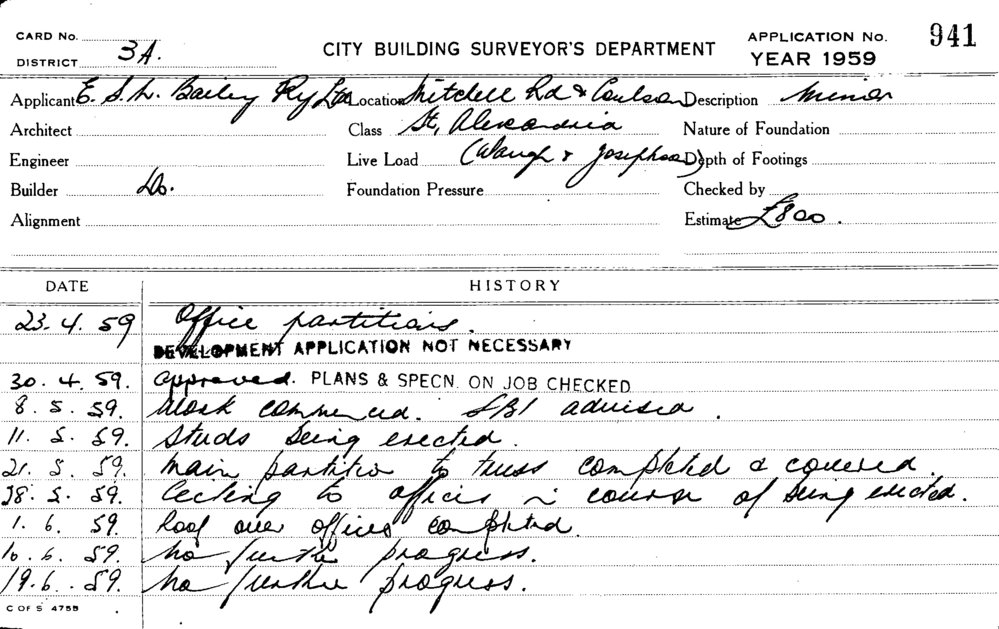 CARD No.
DISTRICT 3A.
CITY BUILDING SURVEYOR'S DEPARTMENT
APPLICATION No. 941
YEAR 1959
Applicant E. S. L. Bailey Pty Ltd Location Mitchell Rd & Coulson Description Minor
Architect Class St, Alexandria Nature of Foundation
Engineer Live Load (Waugh & Josephson) Depth of Footings
Builder Do. Foundation Pressure Checked by
Alignment Estimate £800.
DATE HISTORY
23.4.59 Office partitions.
DEVELOPMENT APPLICATION NOT NECESSARY
30.4.59. Approved. PLANS & SPECN. ON JOB CHECKED
8.5.59. Work commenced. SBI advised.
11.5.59. Studs being erected.
21.5.59. Main partition to truss completed & covered.
28.5.59. Ceiling to offices in course of being erected.
1.6.59. Roof over offices completed.
10.6.59. No further progress.
19.6.59. No further progress.
C OF S 475B